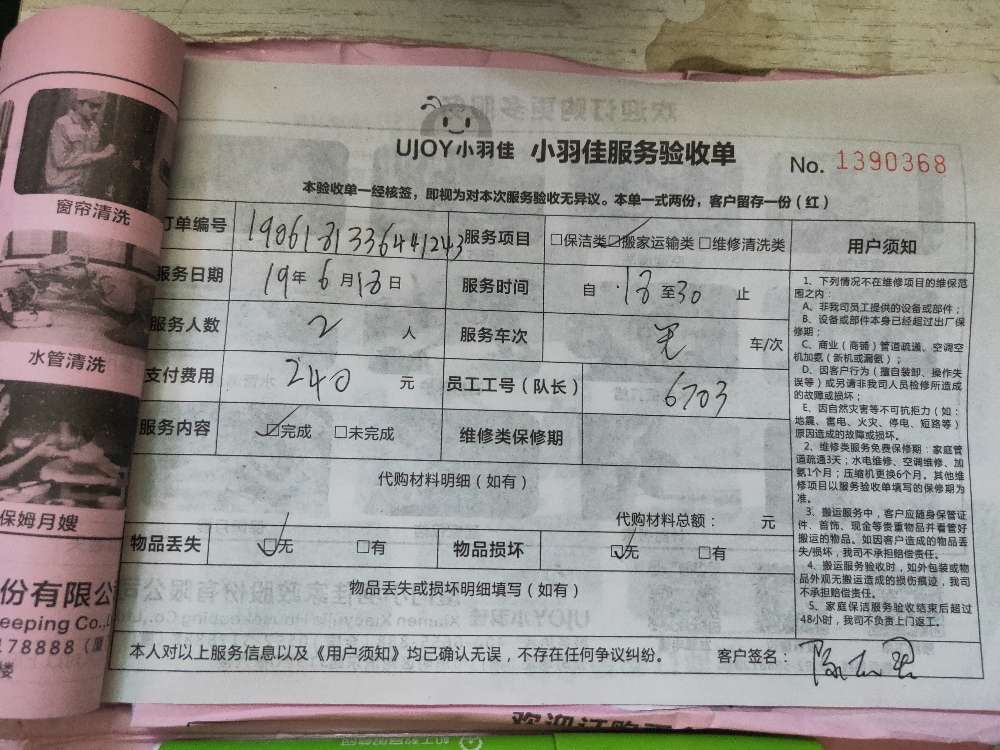 窗帘清洗
水管清洗
保姆月嫂
份有限公
eeping Co.,L
178888（厦
楼
UJOY小羽佳 小羽佳服务验收单
No. 1390368
本验收单一经核签，即视为对本次服务验收无异议。本单一式两份，客户留存一份（红）
订单编号 19061813364412​43 服务项目 □保洁类☑搬家运输类□维修清洗类
服务日期 19年6月18日 服务时间 自 18 至30 止
服务人数 2 人 服务车次 无 车/次
支付费用 240 元 员工工号（队长） 6703
服务内容 ☑完成 □未完成 维修类保修期
代购材料明细（如有）
代购材料总额： 元
物品丢失 ☑无 □有 物品损坏 ☑无 □有
物品丢失或损坏明细填写（如有）
本人对以上服务信息以及《用户须知》均已确认无误，不存在任何争议纠纷。 客户签名：
用户须知
1、下列情况不在维修项目的维保范
围之内：
A、非我司员工提供的设备或部件；
B、设备或部件本身已经超过出厂保
修期；
C、商业（商铺）管道疏通、空调空
机加氨（新机或漏氨）；
D、因客户行为（擅自装卸、操作失
误等）或另请非我司人员检修所造成
的故障或损坏；
E、因自然灾害等不可抗拒力（如：
地震、雷电、火灾、停电、短路等）
原因造成的故障或损坏。
2、维修类服务免费保修期：家庭管
道疏通3天；水电维修、空调维修、加
氨1个月；压缩机更换6个月。其他维
修项目以服务验收单填写的保修期为
准。
3、搬运服务中，客户应随身保管证
件、首饰、现金等贵重物品并看管好
搬运的物品。如因客户造成的物品丢
失/损坏，我司不承担赔偿责任。
4、搬运服务验收时，如外包装或物
品外观无搬运造成的损伤痕迹，我司
不承担赔偿责任。
5、家庭保洁服务验收结束后超过
48小时，我司不负责上门返工。